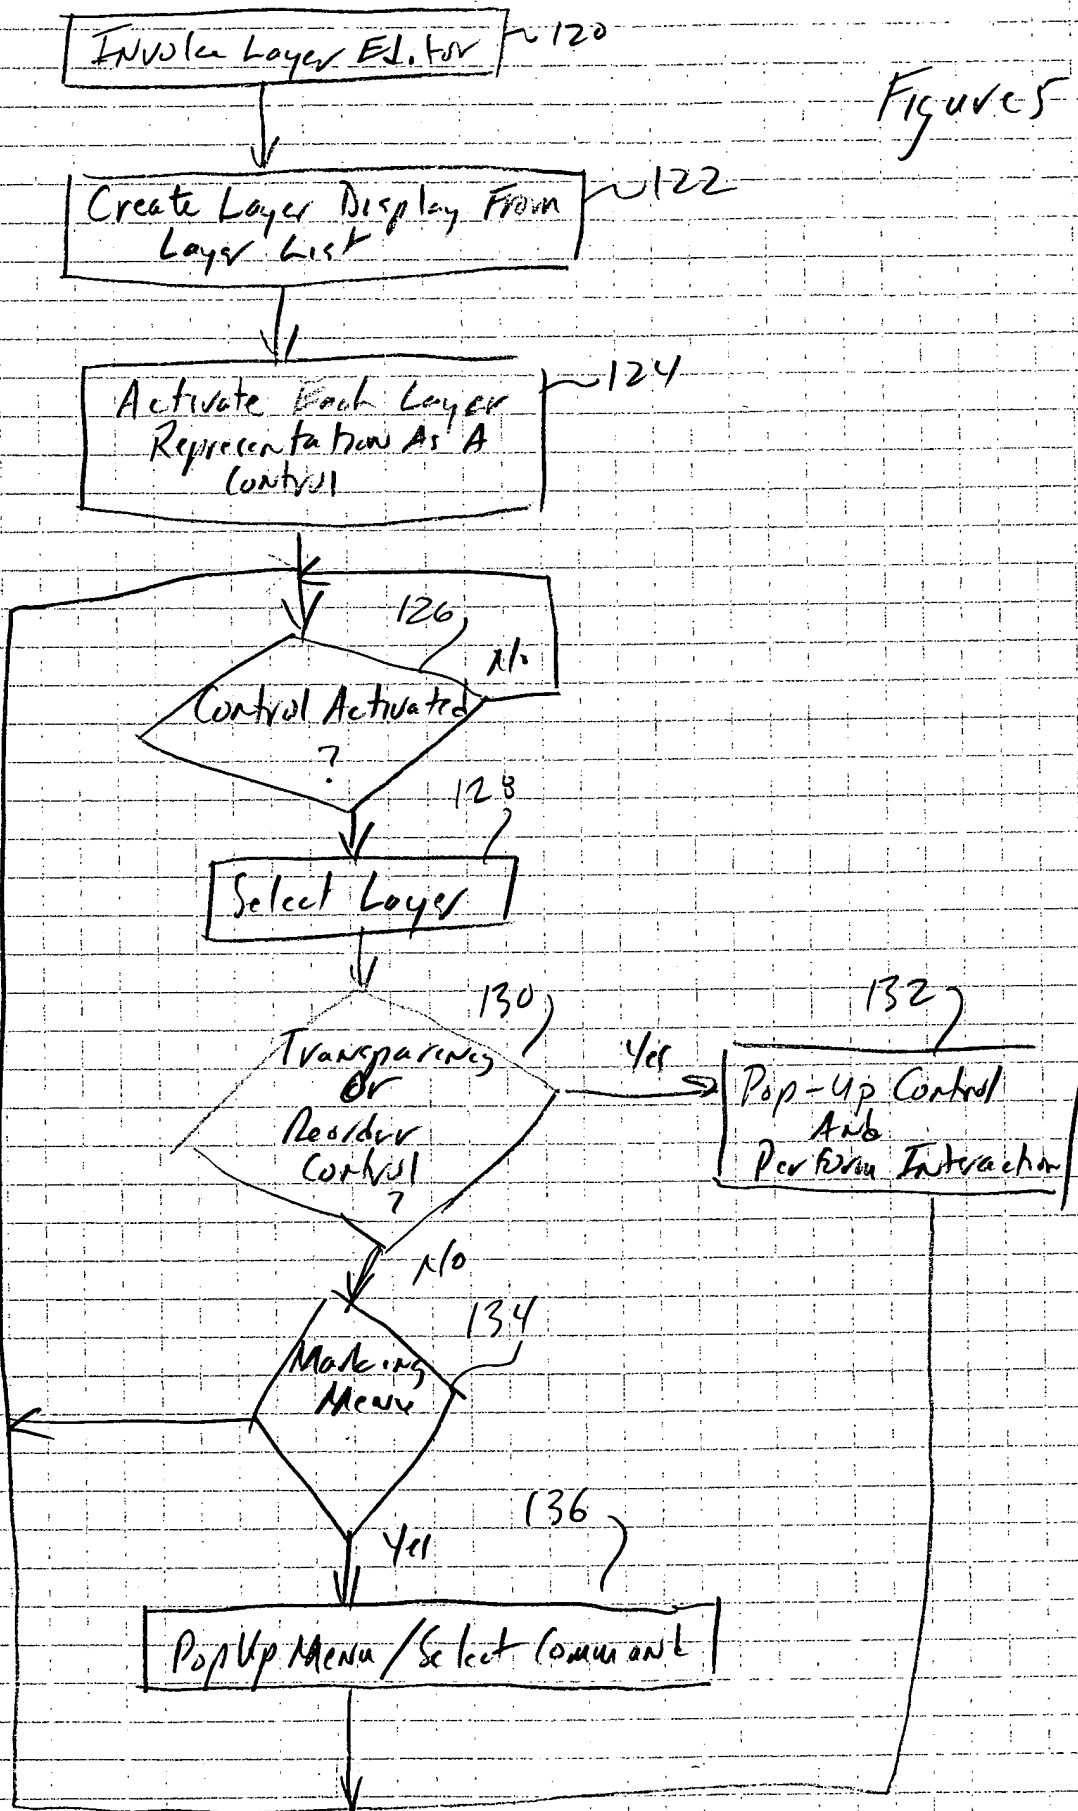 Invoke Layer Editor
120
Figure 5
Create Layer Display From
Layer List
122
Activate Each Layer
Representation As A
Control
124
126
No
Control Activated
?
128
Select Layer
130
Transparency
Or
Reorder
Control
?
Yes
132
Pop-Up Control
And
Perform Interaction
No
134
Marking
Menu
136
Yes
PopUp Menu/Select Command